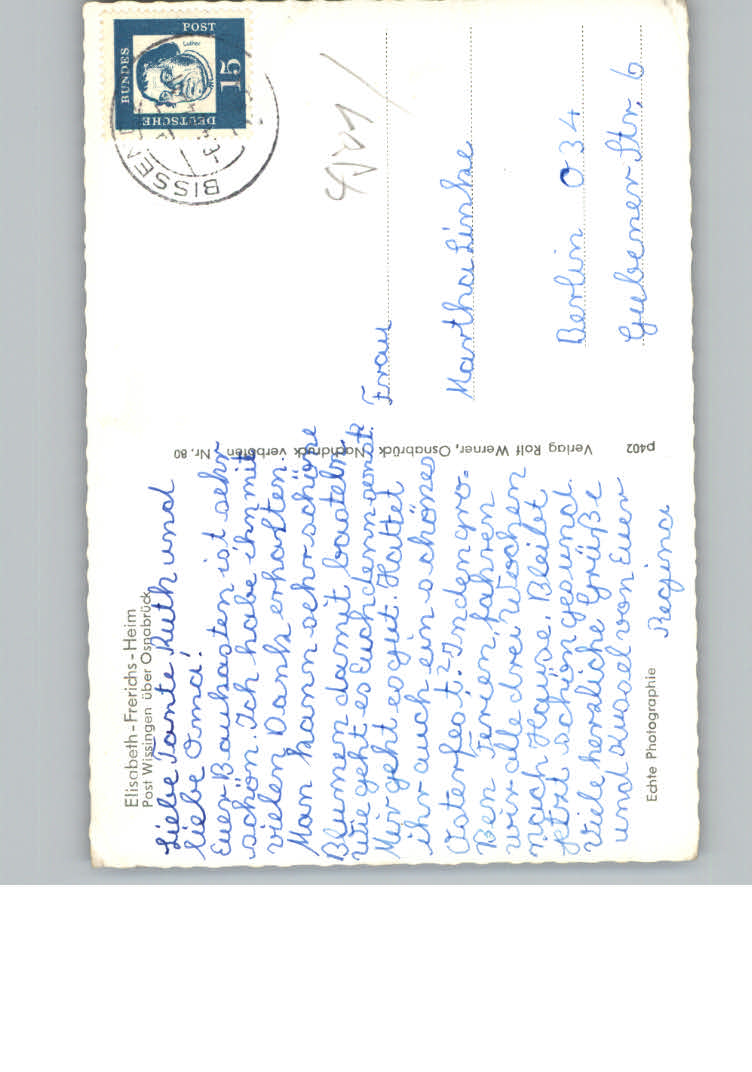 Elisabeth-Frerichs-Heim
Post Wissingen über Osnabrück
Liebe Tante Ruth und
liebe Oma!
Euer Baukasten ist sehr
schön. Ich habe ihn mit
vielen Dank erhalten.
Man kann sehr schöne
Blumen damit basteln.
Wie geht es Euch denn sonst?
Mir geht es gut. Hattet
ihr auch ein schönes
Osterfest? In den gro-
ßen Ferien fahren
wir alle drei Wochen
nach Hause. Bleibt
jetzt schön gesund.
Viele herzliche Grüße
und Kussel von Euer
Regina
Echte Photographie
Verlag Rolf Werner, Osnabrück Nachdruck verboten Nr. 80
p402
DEUTSCHE
BUNDES
POST
Luther
15
BISSEN
Frau
Martha Linke
Berlin O 34
Gubener Str. 6